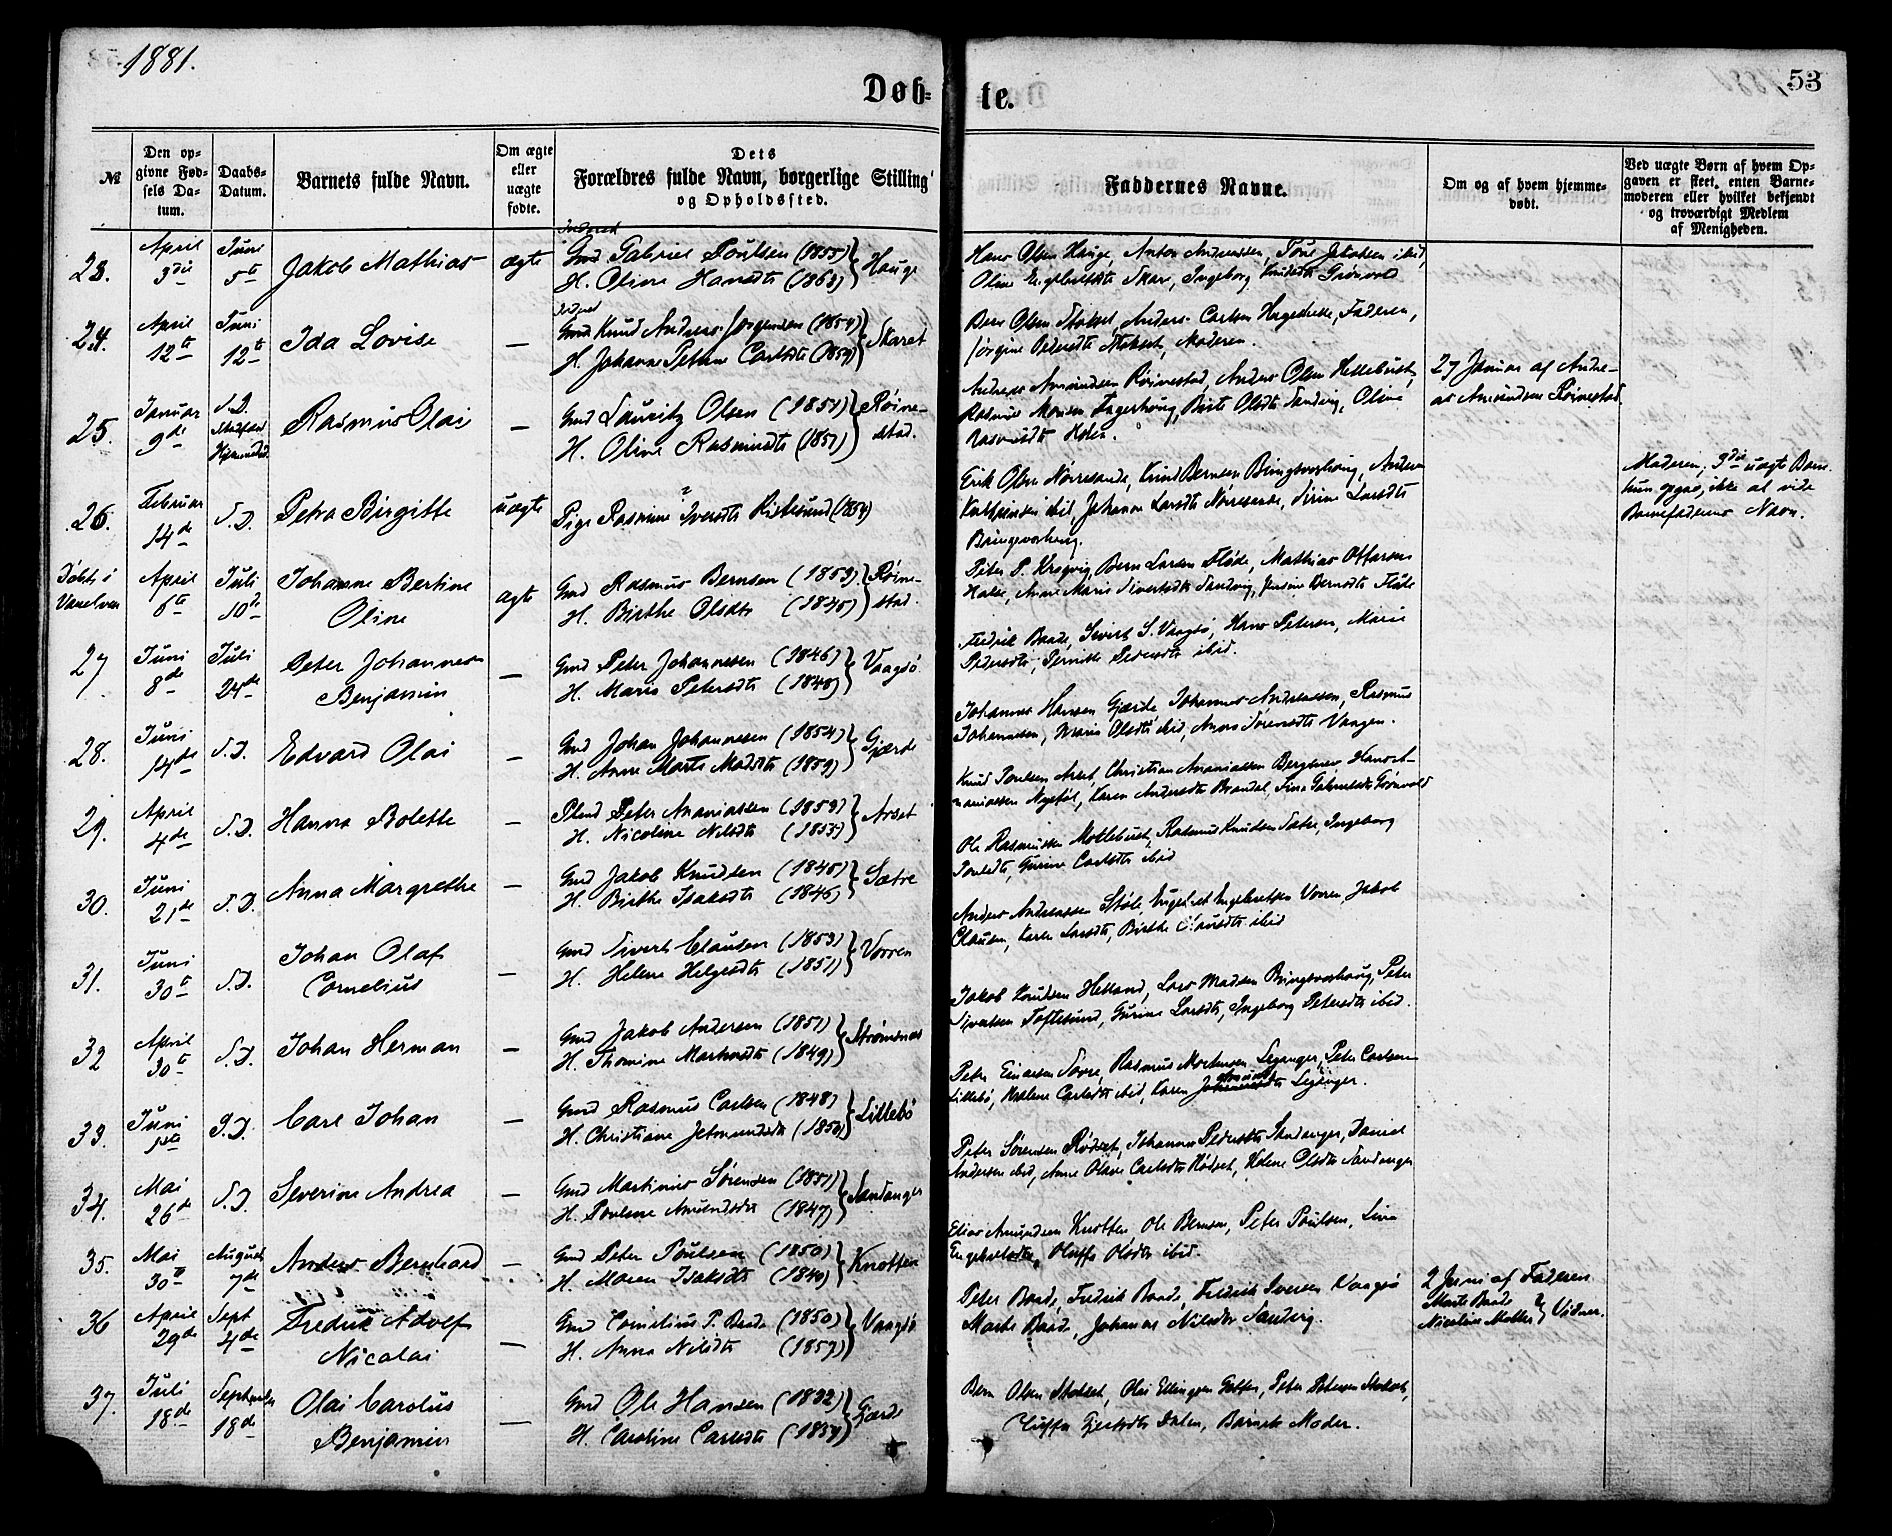 1881.
53
Døb-
te.
№
Den op-
givne Fød-
sels Da-
tum.
Daabs-
Datum.
Barnets fulde Navn.
Om ægte
eller
uægte
fødte.
Dets
Forældres fulde Navn, borgerlige Stilling
og Opholdssted.
Faddernes Navne.
Om og af hvem hjemme-
døbt.
Ved uægte Børn af hvem Op-
gaven er skeet, enten Barne-
moderen eller hvilket bekjendt
og troværdigt Medlem
af Menigheden.
23. April 3die Juni 5te Jakob Mathias ægte
Gmd Gabriel Poulsen (1855) Hauge
H. Oline Hansdt (1863)
Hans Olsen Hauge, Anton Andreassen, Jakobsen ibid,
Oline Engebretsdt Skar, Ingeborg Knudsdt Grønvold
24. April 12te Juni 12te Ida Lovise —
Gmd Knud Andreas Jørgensen (1854) Skaret
H. Johanne Petrine Carlsdt (1854)
Bern Olsen Stokset, Anders Carlsen, Faderen,
Jørgine Pedersdt Stokset, Moderen.
25. Januar 9de S.D. Rasmus Olai —
Gmd Lauritz Olsen (1851) Røine-
H. Oline Rasmusdt (1857) stad.
Andreas Amundsen Røinestad, Anders Olsen Hellebust,
Rasmus Monsen Fagerhoug, Birte Olsdt Sandvig, Oline
Rasmusdt
27 Januar af Andre-
as Amundsen Røinestad
26. Februar 14de S.D. Petra Birgitte uægte
Pige Rasmine Iversdt Ristesund (1854)
Erik Olsen Nørresande, Knud Bernsen Bringsvorhoug,
ibid, Johanne Larsdt Nørresande, Sirine Larsdt
Bringsvorhoug.
Moderen, 3die uægte Barn.
hun opgav, ikke at vide
Barnefaderens Navn.
Døbt i
Vanelven
April 6te Juli 10de Johanne Bertine ægte
Oline
Gmd Rasmus Bernsen (1853) Røine-
H. Birthe Olsdt (1845) stad.
Peter P. Krogvig, Bern Larsen Fløde, Mathias
Anne Marie Sivertsdt Sandvig, Jensine Berndt Fløde
27 Juni 8de Juli 24de Peter Johannes —
Benjamin
Gmd Peter Johannesen (1846) Vaagsø
H. Maria Petersdt (1848)
Fredrik Baade, Sivert S. Vaagsø, Hans Petersen, Marie
Pedersdt, Pernille Pedersdt ibid.
28. Juni 14de S.D. Edvard Olai —
Gmd Johan Johannesen (1854) Gjærde
H. Anne Marte Madsdt (1859)
Johannes Hansen Gjærde, Johannes Andreassen, Rasmus
Johannesen, Maria Olsdt ibid, Anne Sørensdt Vaagen.
29. April 4de S.D. Hanna Bolette —
Peter Ananiassen (1853) Arset
H. Nicoline Nilsdt (1853)
Knud Poulsen Arset, Christian Ananiassen
Karen Andersdt Brandal, Gabrielsdt Grønvold
30. Juni 21de S.D. Anna Margrethe —
Gmd Jakob Knudsen (1845) Sætre
H. Birthe Isaksdt (1846)
Ole Rasmussen Moltebust, Rasmus Knudsen Sætre, Ingeborg
Poulsdt, Gurine Carlsdt ibid
31. Juni 30te S.D. Johan Olaf —
Cornelius
Gmd Sivert Clausen (1853) Vorren
H. Helene Helgesdt (1851)
Anders Andreassen Støle, Engebret Engebretsen Vorren, Jakob
Clausen, Karen Larsdt, Birthe Clausdt ibid
32 April 30te S.D. Johan Herman —
Gmd Jakob Andersen (1851) Strømsnes
H. Thomine Martinsdt (1849)
Jakob Knudsen Helland, Lars Madsen Bringsvorhoug, Peter
Sivertsen Toftesund, Gurine Larsdt, Ingeborg Petersdt ibid.
33. Juni 1ste S.D. Carl Johan —
Gmd Rasmus Carlsen (1848) Lillebø
H. Christiane Jetmundsdt (1850)
Peter Einarsen Sørre, Rasmus Mortensen Leganger, Peter Carlsen
Lillebø, Malene Carlsdt ibid, Karen Leganger.
34. Mai 26de S.D. Severine Andrea —
Gmd Martinus Sørensen (1851) Sandanger
H. Poulene Amundsdt (1847)
Peter Sørensen Rødset, Johannes Sandanger, Daniel
Andersen ibid, Anne Olave Carlsdt Rødset, Helene Olsdt Sandanger
35. Mai 30te August 7de Anders Bernhard —
Gmd Peter Poulsen (1850) Knotten
H. Maren Isaksdt (1840)
Elias Amundsen Knotten, Ole Bernsen, Peter Poulsen, Lina
Engebretsdt, Oluffa Olsdt ibid.
36 April 29de Sept 4de Fredrik Adolf —
Nicolai
Gmd Cornelius P. Baade (1850) Vaagsø
H. Anna Nilsdt (1857)
Peter Baade, Fredrik Baade, Fredrik Iversen Vaagsø
Marte Baade, Johanne Nilsdt Sandvig.
2 Juni af Faderen
Marte Baade
Nicoline Møller Vidner.
37. Juli 18de September 18de Olai Carolus —
Benjamin
Gmd Ole Hansen (1832) Gjærde
H. Caroline Carlsdt (1837)
Bern Olsen Stokset, Ole Ellingsen, Peter Petersen Stokset,
Oluffa Dalen, Barnets Moder.